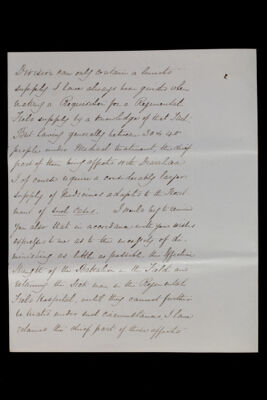 2
Division can only contain a limited
supply I have always been guided when
making a Requisition for a Regimental
Field supply by a knowledge of that fact.
But having generally between 30 & 40
people under Medical treatment, the chief
part of them being affected with Diarrhoea
I of course require a considerably larger
supply of Medicines adapted to the treat
ment of such cases. I would beg to remind
you also that in accordance with your wishes
expressed to me as to the necessity of di-
minishing as little as possible, the effective
strength of the Battalion in the Field and
retaining the sick men in the Regimental
Field Hospital, until they cannot further
be treated under such circumstances, I have
retained the chief part of those affected